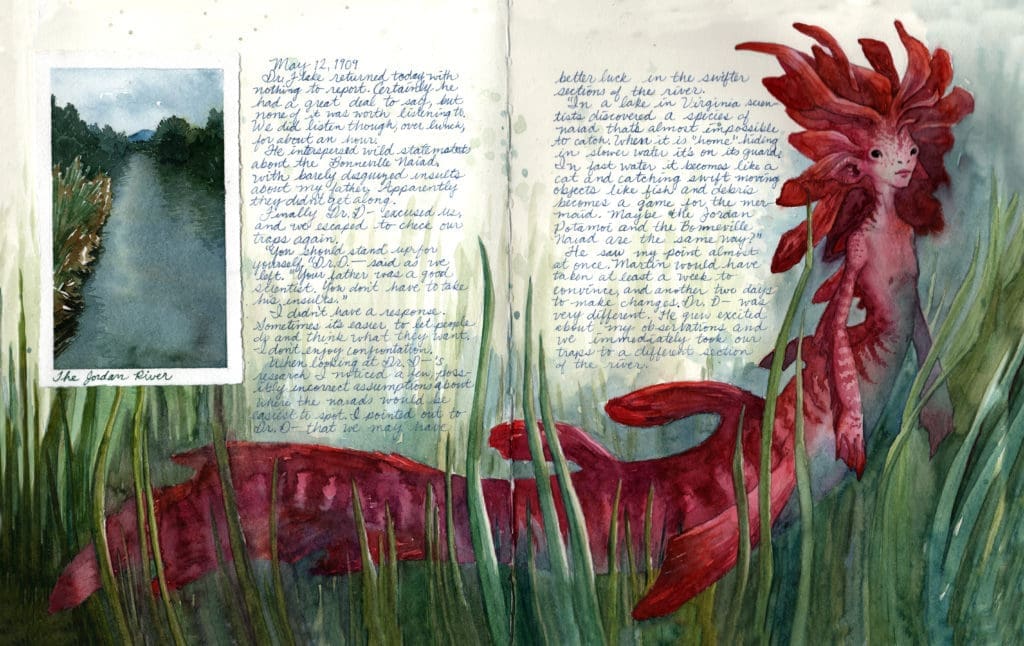 May 12, 1909
Dr. Flake returned today with
nothing to report. Certainly he
had a great deal to say, but
none of it was worth listening to.
We did listen though, over lunch,
for about an hour.
He interspersed wild statements
about the Bonneville Naiad,
with barely disguized insults
about my father. Apparently
they didn't get along.
Finally Dr. D— excused us,
and we escaped to check our
traps again.
"You should stand up for
yourself," Dr. D.— said as we
left. "Your father was a good
scientist. You don't have to take
his insults."
I didn't have a response.
Sometimes its easier to let people
do and think what they want.
I don't enjoy confrontation.
When looking at Dr. D—'s
research I noticed a few poss-
ibly incorrect assumptions about
where the naiads would be
easiest to spot. I pointed out to
Dr. D— that we may have
The Jordan River
better luck in the swifter
sections of the river.
"In a lake in Virginia scien-
tists discovered a spicies of
naiad thats almost impossible
to catch. When it is "home" hiding
in slower water it's on its guard.
In fast water it becomes like a
cat and catching swift moving
objects like fish and debris
becomes a game for the mer-
maid. Maybe the Jordan
Potamoi and the Bonneville
Naiad are the same way?"
He saw my point almost
at once. Martin would have
taken at least a week to
convince, and another two days
to make changes. Dr. D— was
very different. He grew excited
about my observations and
we immediately took our
traps to a different section
of the river.